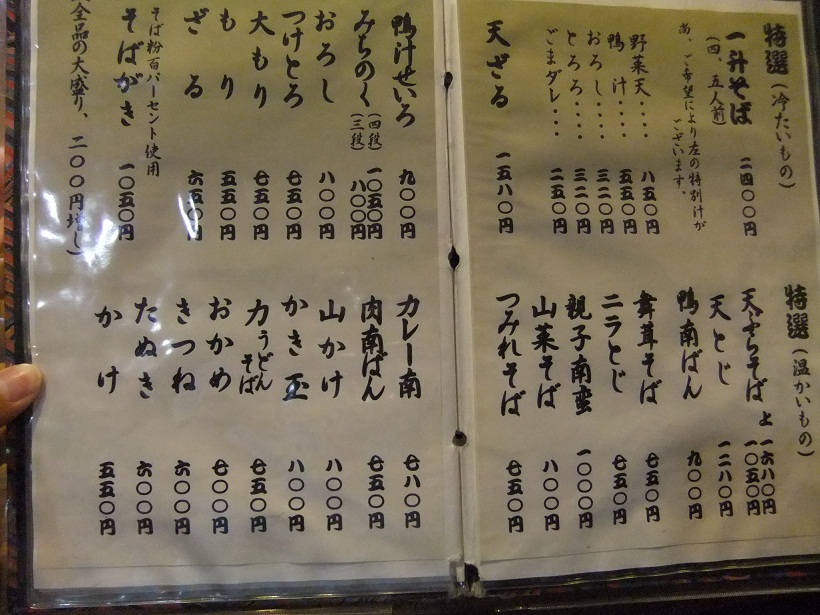 特選（冷たいもの）
一升そば 二四〇〇円
（四、五人前）
尚、ご希望により左の特別汁が
ございます。
野菜天‥‥ 八五〇円
鴨汁‥‥ 五五〇円
おろし‥‥ 三二〇円
とろろ‥‥ 三二〇円
ごまダレ‥‥ 二五〇円
天ざる 一五八〇円
特選（温かいもの）
天ぷらそば 上 一六八〇円
一〇五〇円
天とじ 一二八〇円
鴨南ばん 九〇〇円
舞茸そば 七五〇円
ニラとじ 七五〇円
親子南蛮 一〇〇〇円
山菜そば 八〇〇円
つみれそば 七五〇円
鴨汁せいろ 九〇〇円
みちのく（四段） 一〇五〇円
（三段） 八〇〇円
おろし 八〇〇円
つけとろ 七五〇円
大もり 七五〇円
もり 五五〇円
ざる 六五〇円
そば粉百パーセント使用
そばがき 一〇五〇円
全品の大盛り、二〇〇円増し）
カレー南 七八〇円
肉南ばん 七五〇円
山かけ 八〇〇円
かき玉 八〇〇円
力うどん
そば 七五〇円
おかめ 七〇〇円
きつね 六〇〇円
たぬき 六〇〇円
かけ 五五〇円